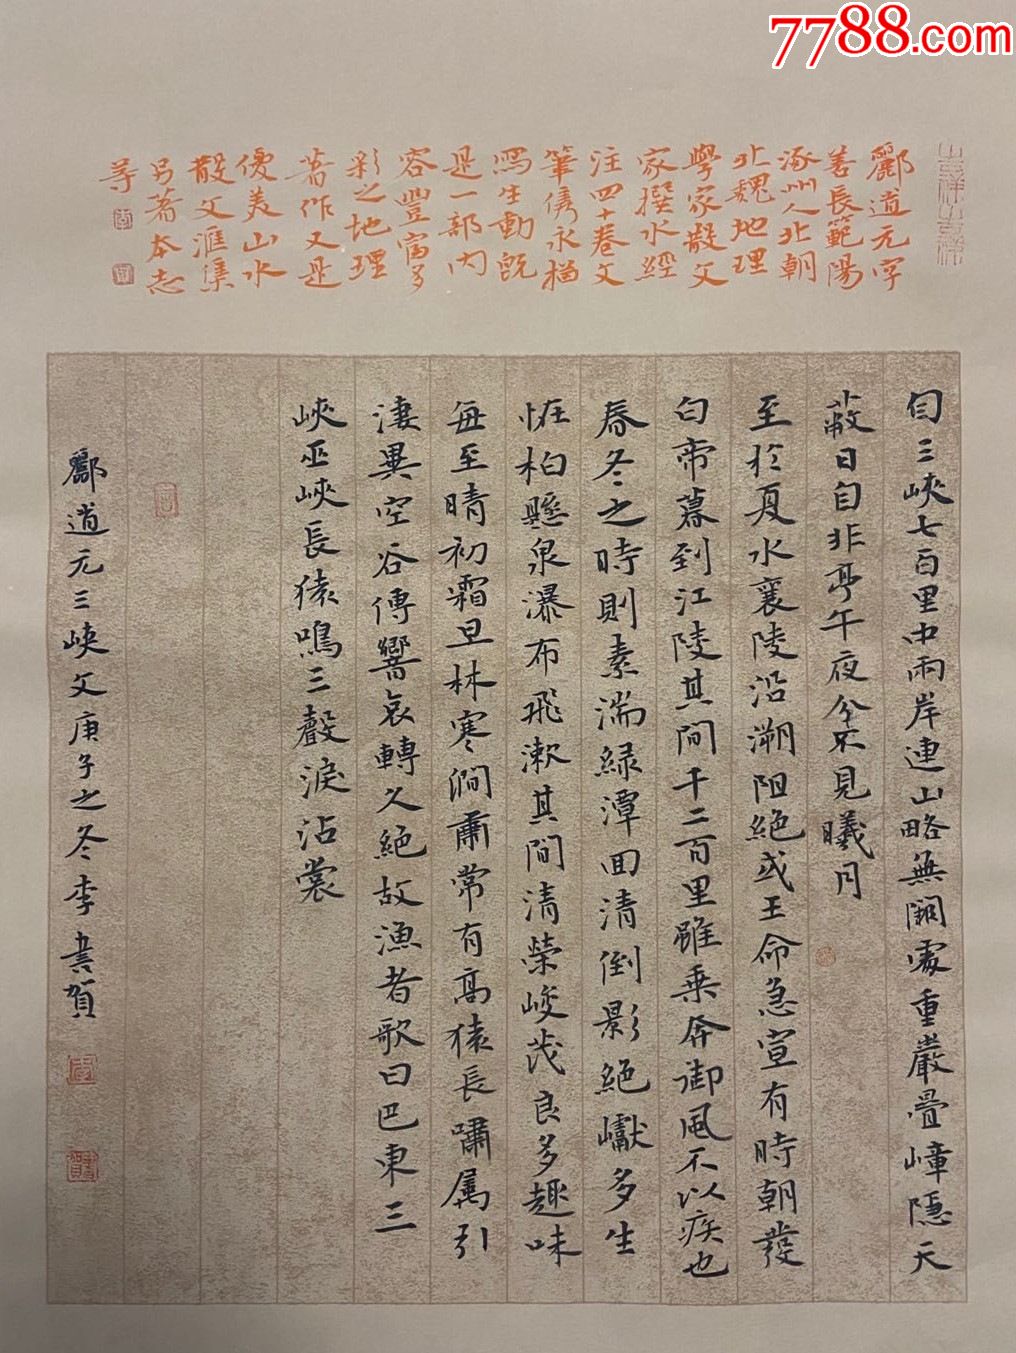 7788.com
酈道元字
善長範陽
涿州人北朝
北魏地理
學家散文
家撰水經
注四十卷文
筆雋永描
寫生動既
是一部內
容豐富多
彩之地理
著作又是
優美山水
散文滙集
另著本志
等
自三峽七百里中兩岸連山略無闕處重巖疊嶂隱天
蔽日自非亭午夜分不見曦月
至於夏水襄陵沿溯阻絕或王命急宣有時朝發
白帝暮到江陵其間千二百里雖乘奔御風不以疾也
春冬之時則素湍綠潭回清倒影絕巘多生
恠柏懸泉瀑布飛漱其間清榮峻茂良多趣味
每至晴初霜旦林寒澗肅常有高猿長嘯属引
淒異空谷傳響哀轉久絕故漁者歌曰巴東三
峽巫峽長猿鳴三聲淚沾裳
酈道元三峽文庚子之冬李書賀